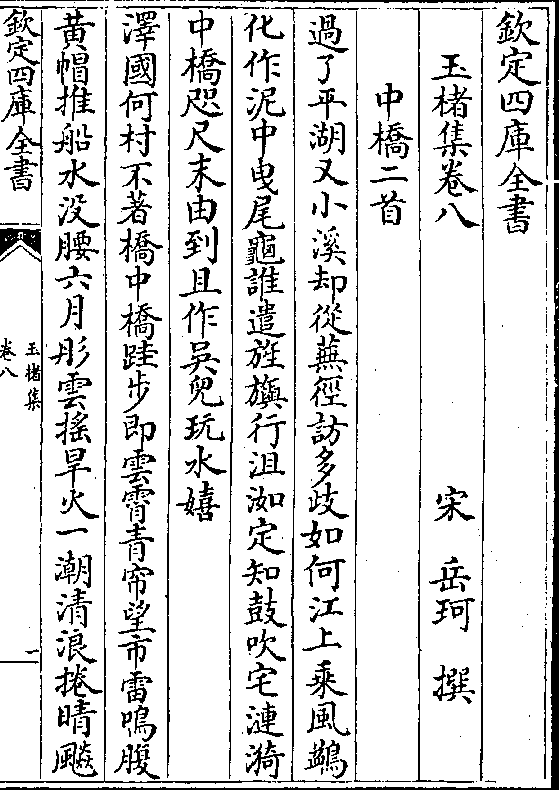 欽定四庫全書
玉楮集卷八
宋 岳珂 撰
中橋二首
過了平湖又小溪却從蕪徑訪多歧如何江上乘風鷁
化作泥中曳尾龜誰遣旌旟行沮洳定知鼓吹宅漣漪
中橋咫尺末由到且作吳兒玩水嬉
澤國何村不著橋中橋跬步即雲霄青帘望市雷鳴腹
黄帽推船水没腰六月彤雲摇旱火一潮清浪捲晴飈
欽定四庫全書
玉楮集
卷八
一